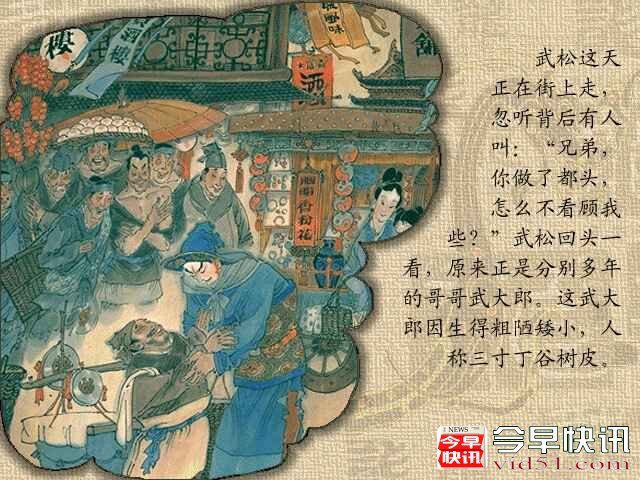 樓
酒
樓
風味
酒
舖
胭
脂
香
粉
花
武松这天
正在街上走，
忽听背后有人
叫：“兄弟，
你做了都头，
怎么不看顾我
些？”武松回头一
看，原来正是分别多年
的哥哥武大郎。这武大
郎因生得粗陋矮小，人
称三寸丁谷树皮。
NEWS
今早
快讯
今早快讯
vid51.com